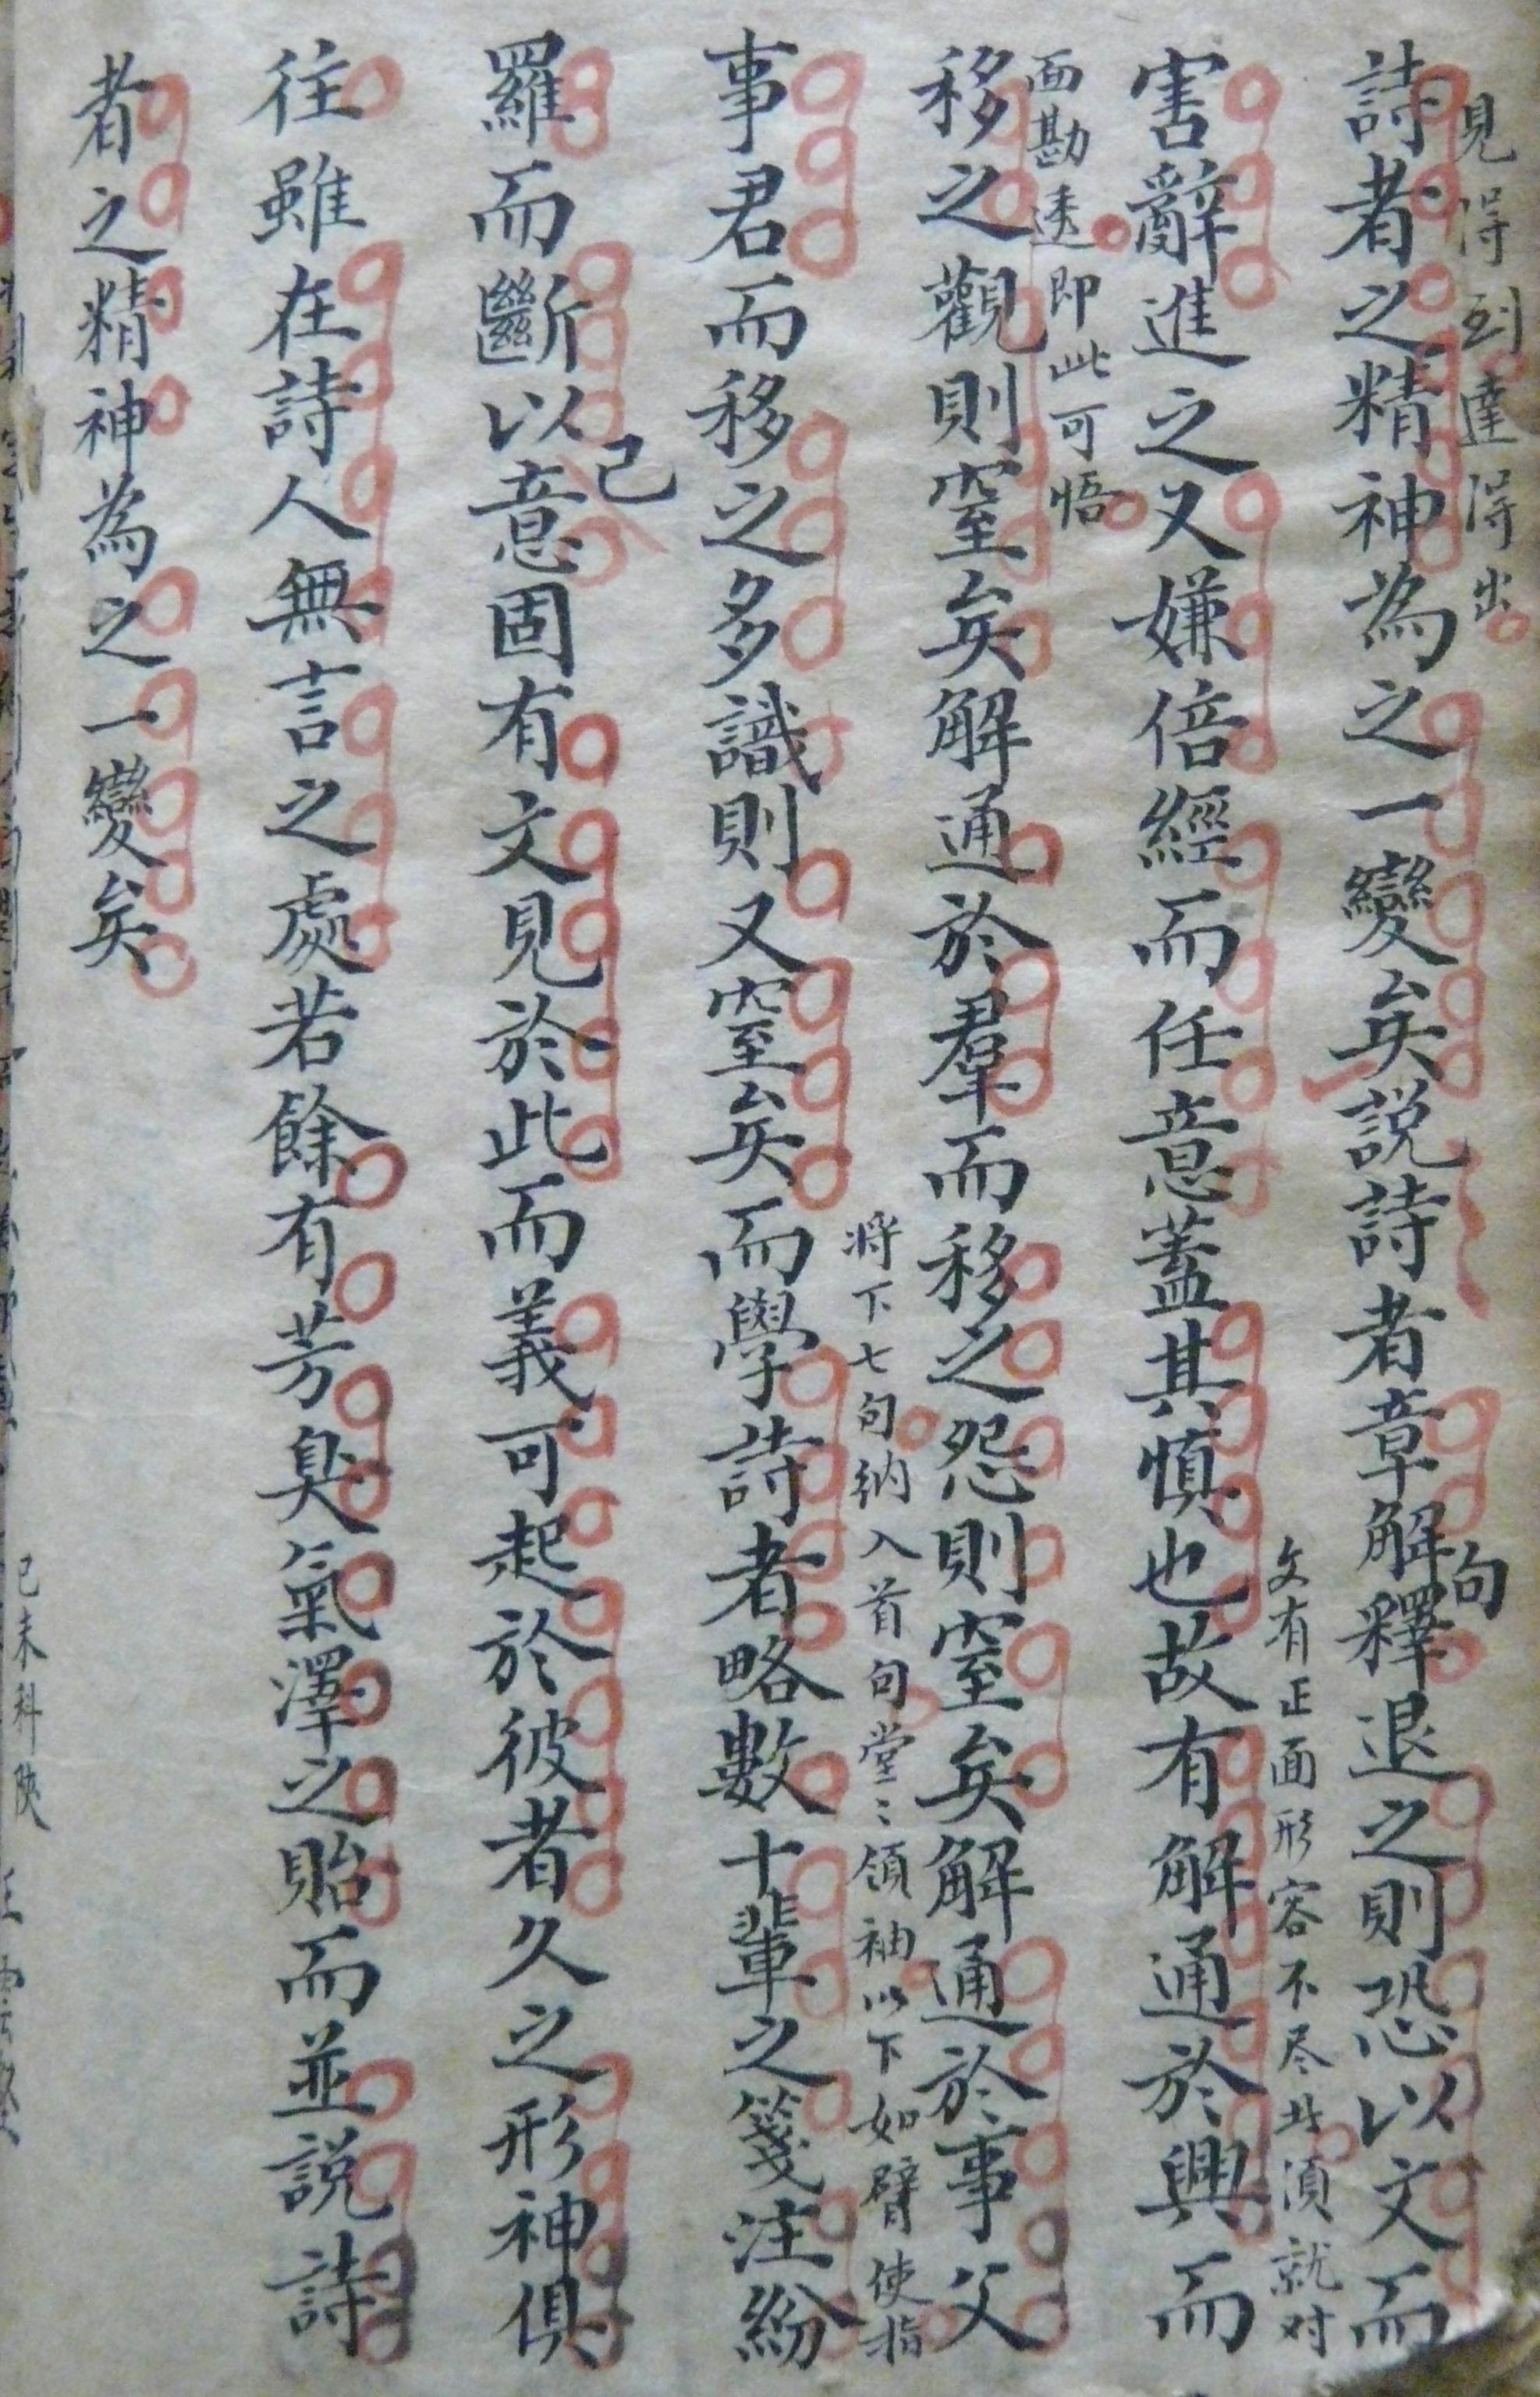 見得到達得出
詩者之精神為之一變矣説詩者章解句釋退之則恐以文而
文有正面形容不尽此須就对
害辭進之又嫌倍經而任意蓋其慎也故有解通於興而
面勘透即此可悟
移之觀則窒矣解通於羣而移之怨則窒矣解通於事父
將下七句納入首句堂〻領袖以下如臂使指
事君而移之多識則又窒矣而學詩者略數十輩之箋注紛
羅而斷以己意固有文見於此而義可起於彼者久之形神俱
往雖在詩人無言之處若餘有芳臭氣澤之貽而並説詩
者之精神為之一變矣
己未科陝